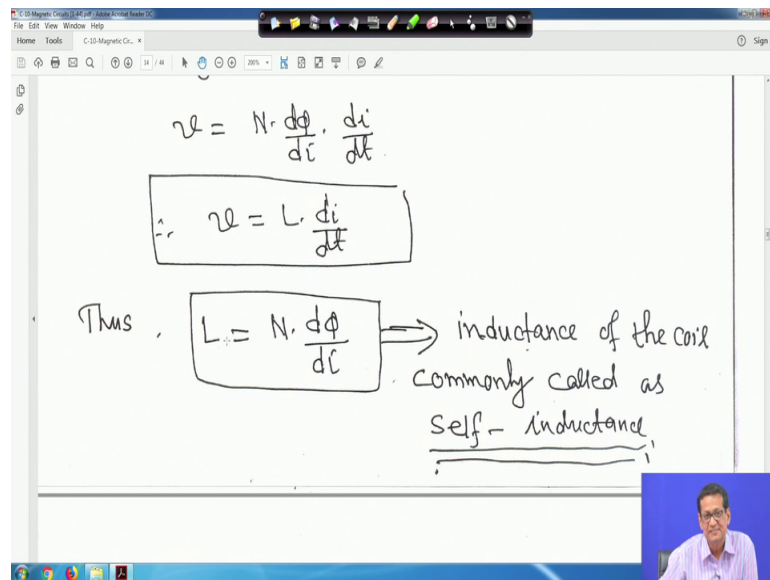 C-10-Magnetic Circuits [1-44].pdf - Adobe Acrobat Reader DC
File Edit View Window Help
Home Tools C-10-Magnetic Cir... × Sign
14 / 44 200%
v = N. dφ/di . di/dt
∴ v = L. di/dt
Thus, L = N. dφ/di ⇒ inductance of the coil
commonly called as
Self-inductance